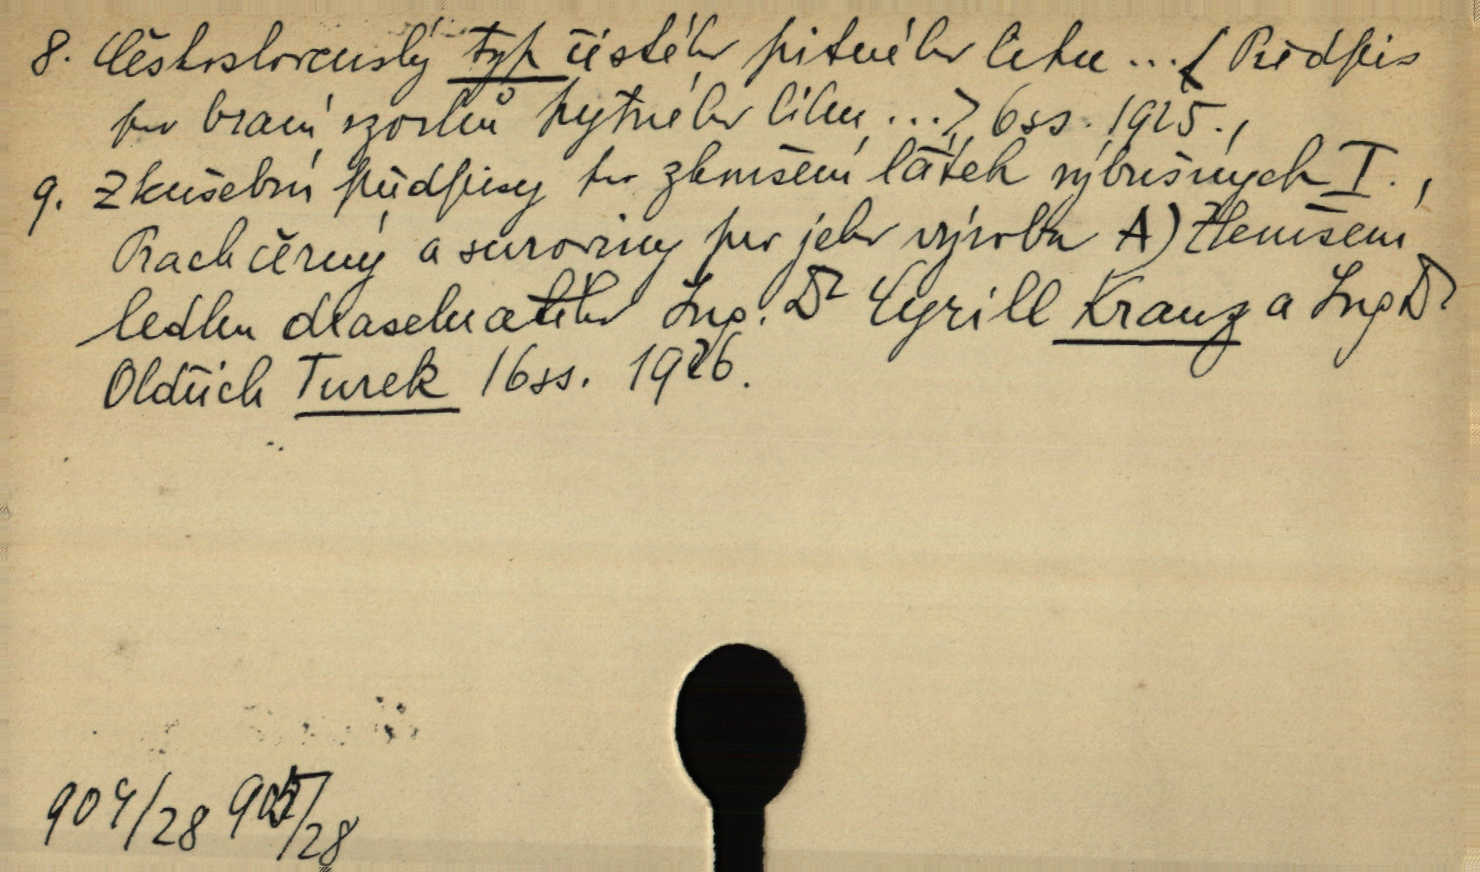 8. Československý typ čistého pitného lihu ... < Předpis
pro braní vzorků pytného lihu ... > 6 ss. 1925.,
9. Zkušební předpisy pro zkoušení látek výbušných I.,
Prach černý a suroviny pro jeho výrobu A) Zkoušení
ledku draselnatého Ing. Dr Cyrill Krauz a Ing Dr
Oldřich Turek 16 ss. 1926.
904/28 905/28